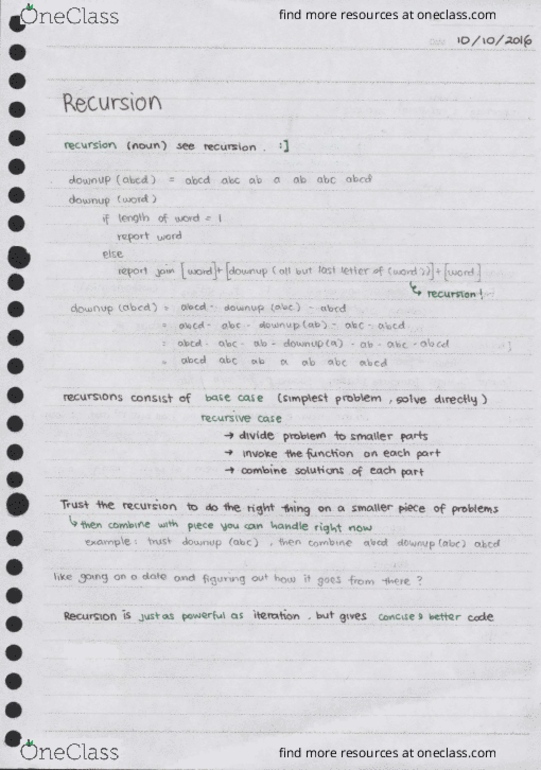 OneClass
find more resources at oneclass.com
10/10/2016
Recursion
recursion (noun) see recursion. :]
downup (abcd) = abcd abc ab a ab abc abcd
downup (word)
if length of word = 1
report word
else
report join [word]+[downup (all but last letter of (word))]+[word]
↳ recursion!
downup (abcd) = abcd - downup (abc) - abcd
= abcd - abc - downup (ab) - abc - abcd
= abcd - abc - ab - downup (a) - ab - abc - abcd
= abcd abc ab a ab abc abcd
recursions consist of base case (simplest problem, solve directly)
recursive case
→ divide problem to smaller parts
→ invoke the function on each part
→ combine solutions of each part
Trust the recursion to do the right thing on a smaller piece of problems
↳ then combine with piece you can handle right now
example: trust downup (abc), then combine abcd downup (abc) abcd
like going on a date and figuring out how it goes from there?
Recursion is just as powerful as iteration, but gives concise & better code
OneClass
find more resources at oneclass.com